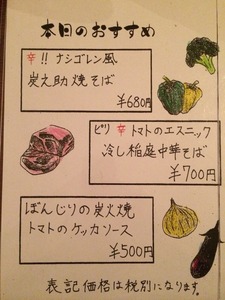 本日のおすすめ
辛!! ナシゴレン風
炭之助焼そば
¥680円
ピリ辛トマトのエスニック
冷し稲庭中華そば
¥700円
ぼんじりの炭火焼
トマトのケッカソース
¥500円
表記価格は税別になります。